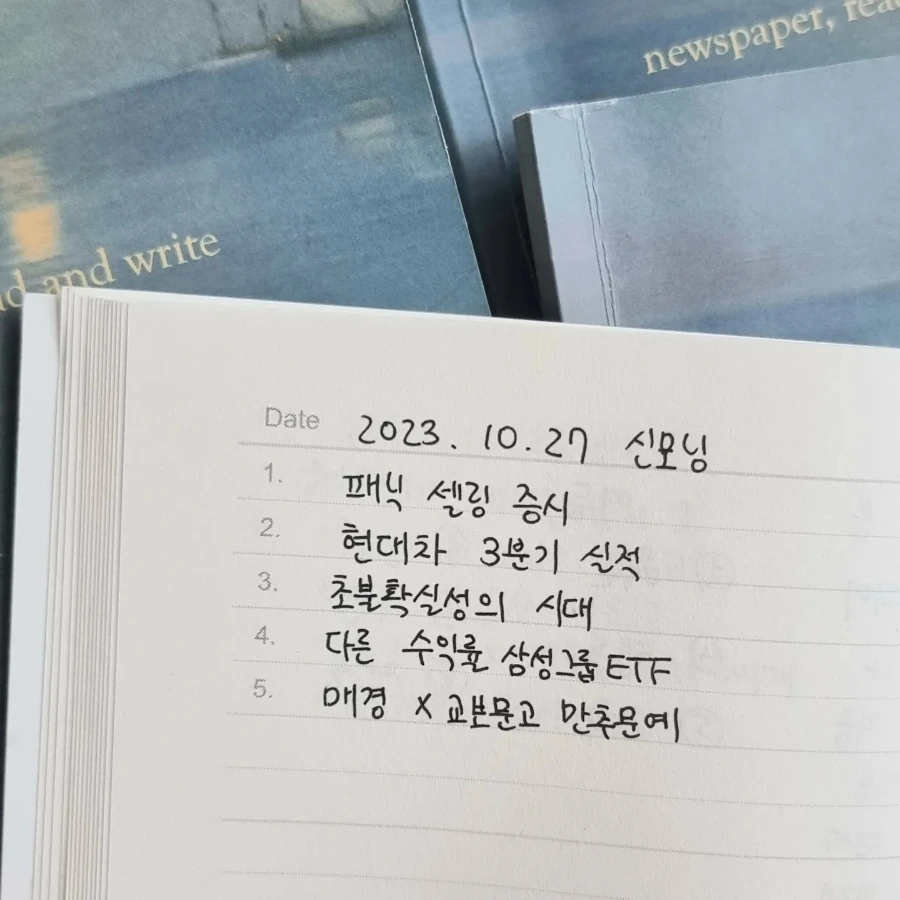 newspaper, rea
d and write
Date 2023. 10. 27 신모닝
1. 패닉 셀링 증시
2. 현대차 3분기 실적
3. 초불확실성의 시대
4. 다른 수익률 삼성그룹 ETF
5. 매경 X 교보문고 만추문예